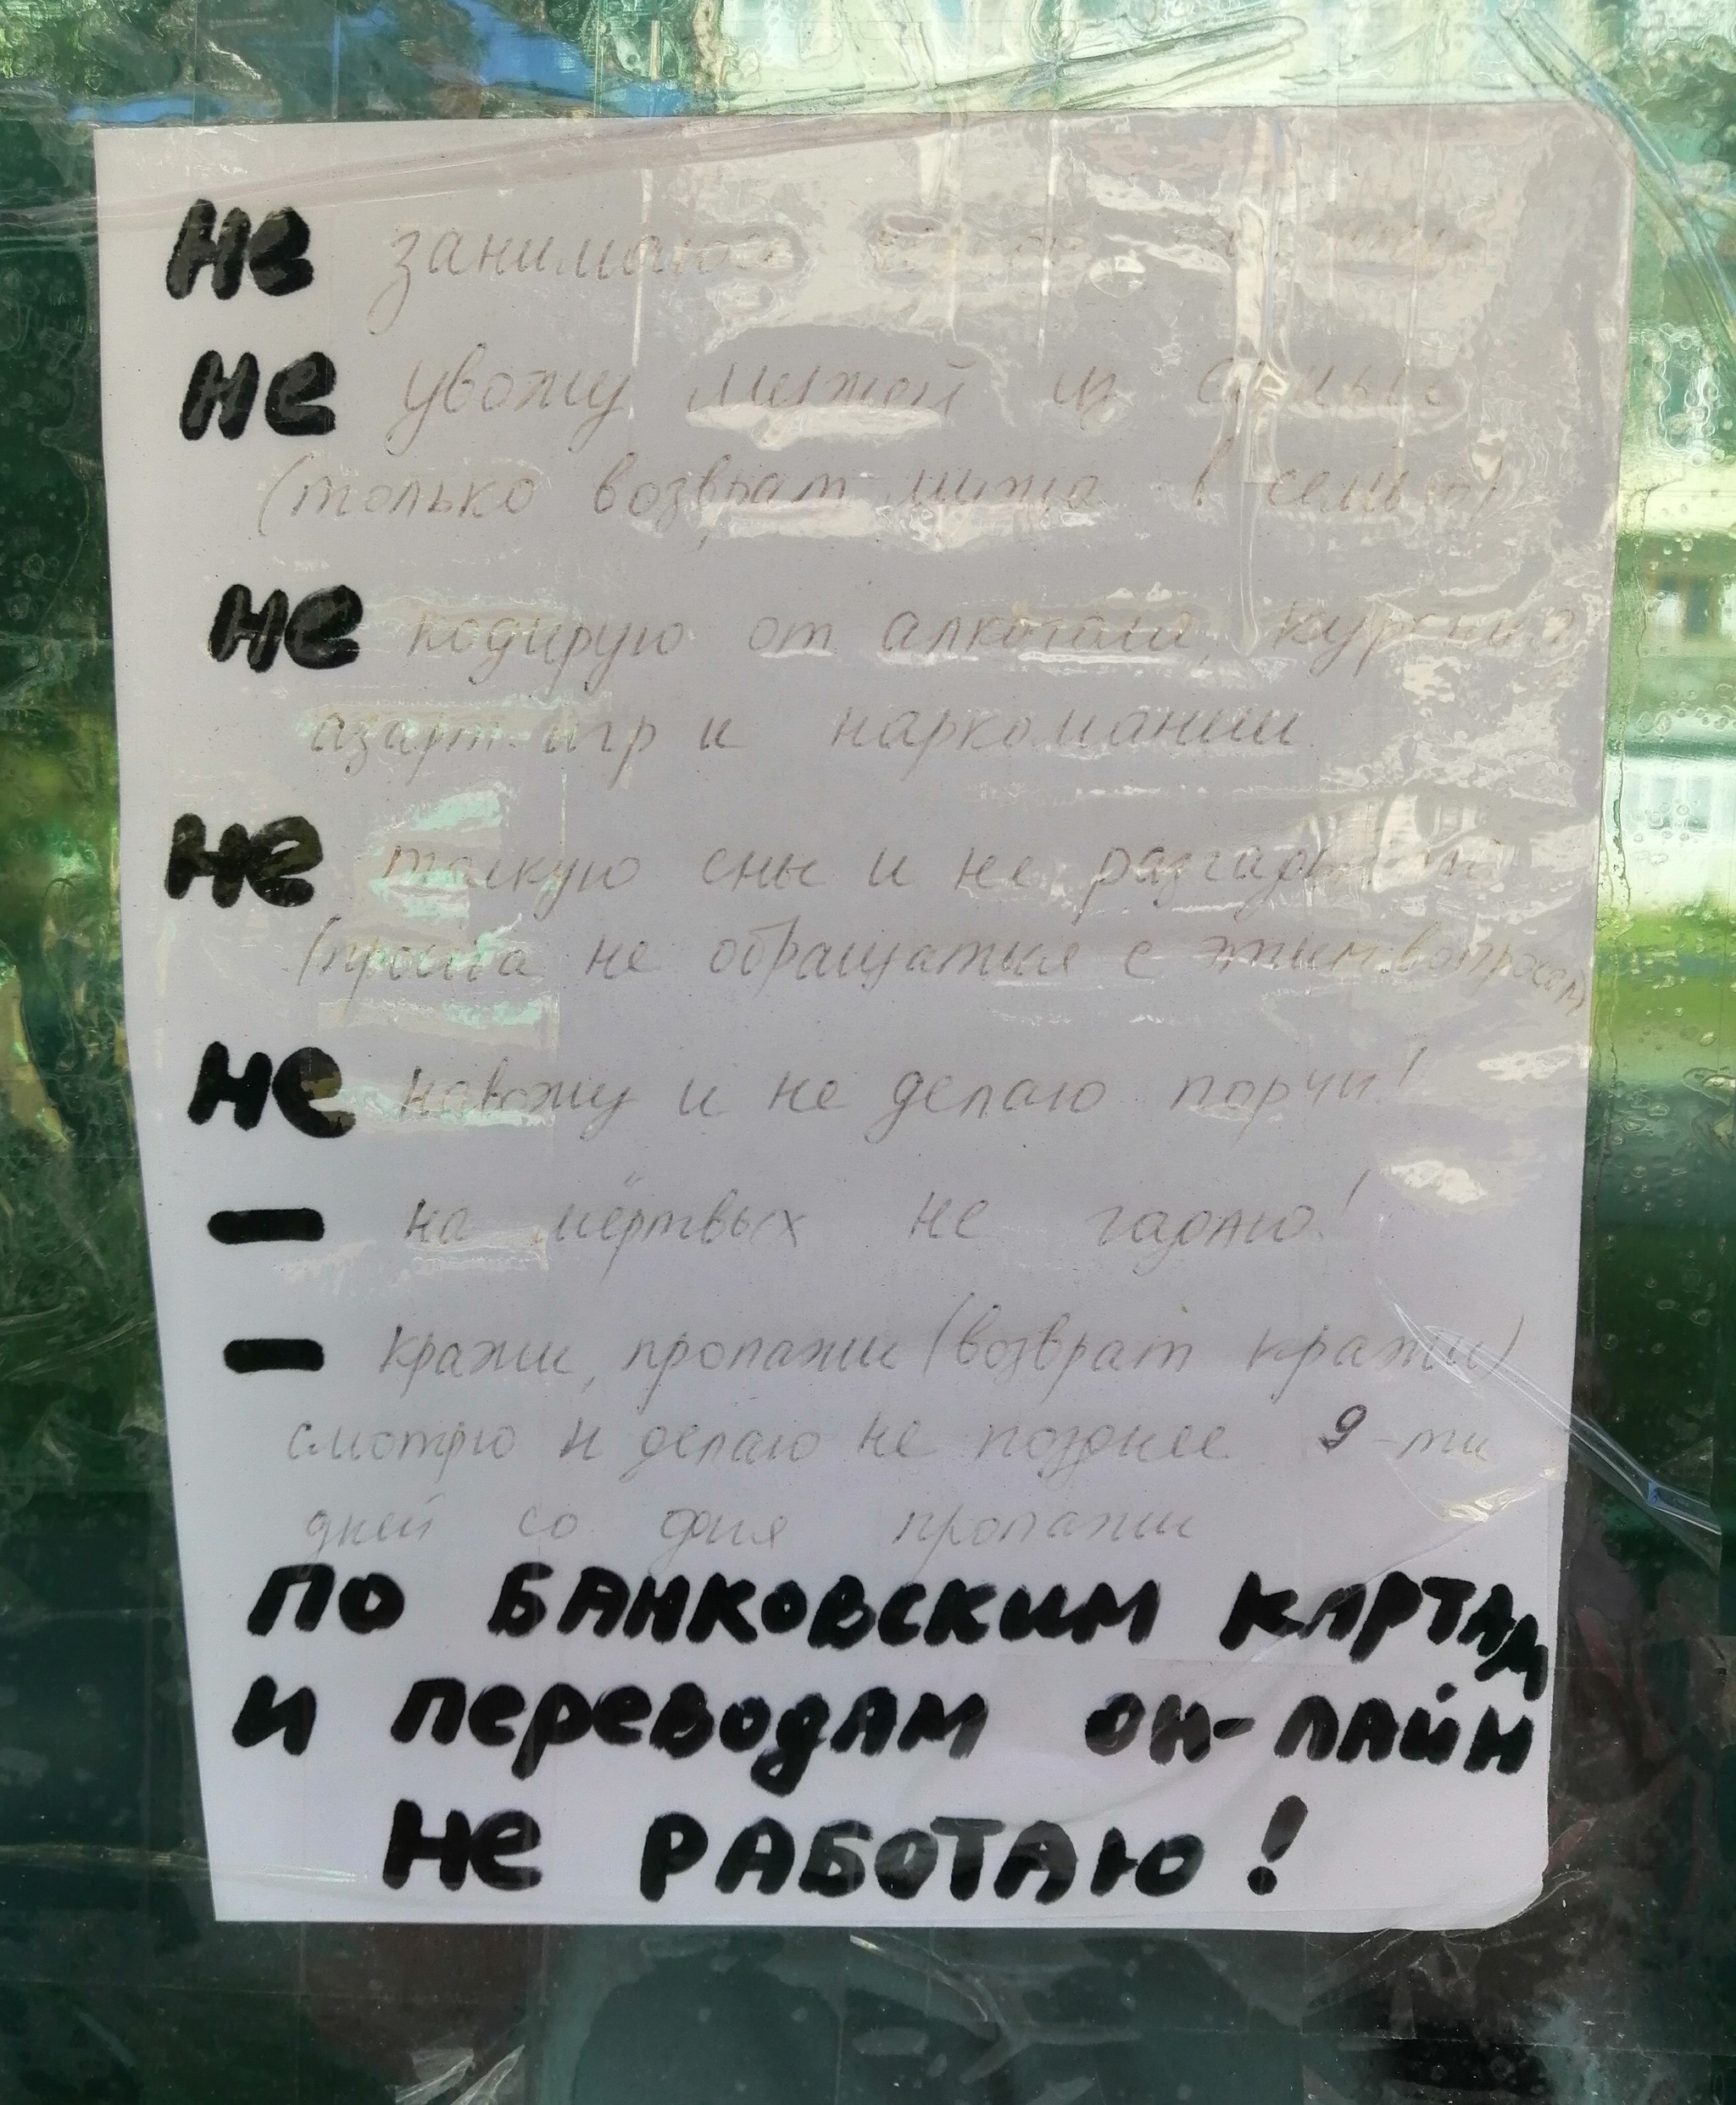 не занимаюсь
не увожу мужей из семьи
(только возврат мужа в семью)
не кодирую от алкоголя, курения
азарт. игр и наркомании
не толкую сны и не разгадываю
(просьба не обращаться с этим вопросом)
не навожу и не делаю порчи!
— на мёртвых не гадаю!
— кражи, пропажи (возврат кражи)
смотрю и делаю не позднее 9-ти
дней со дня пропажи
ПО БАНКОВСКИМ КАРТАМ
и переводам он-лайн
не РАБОТАЮ!